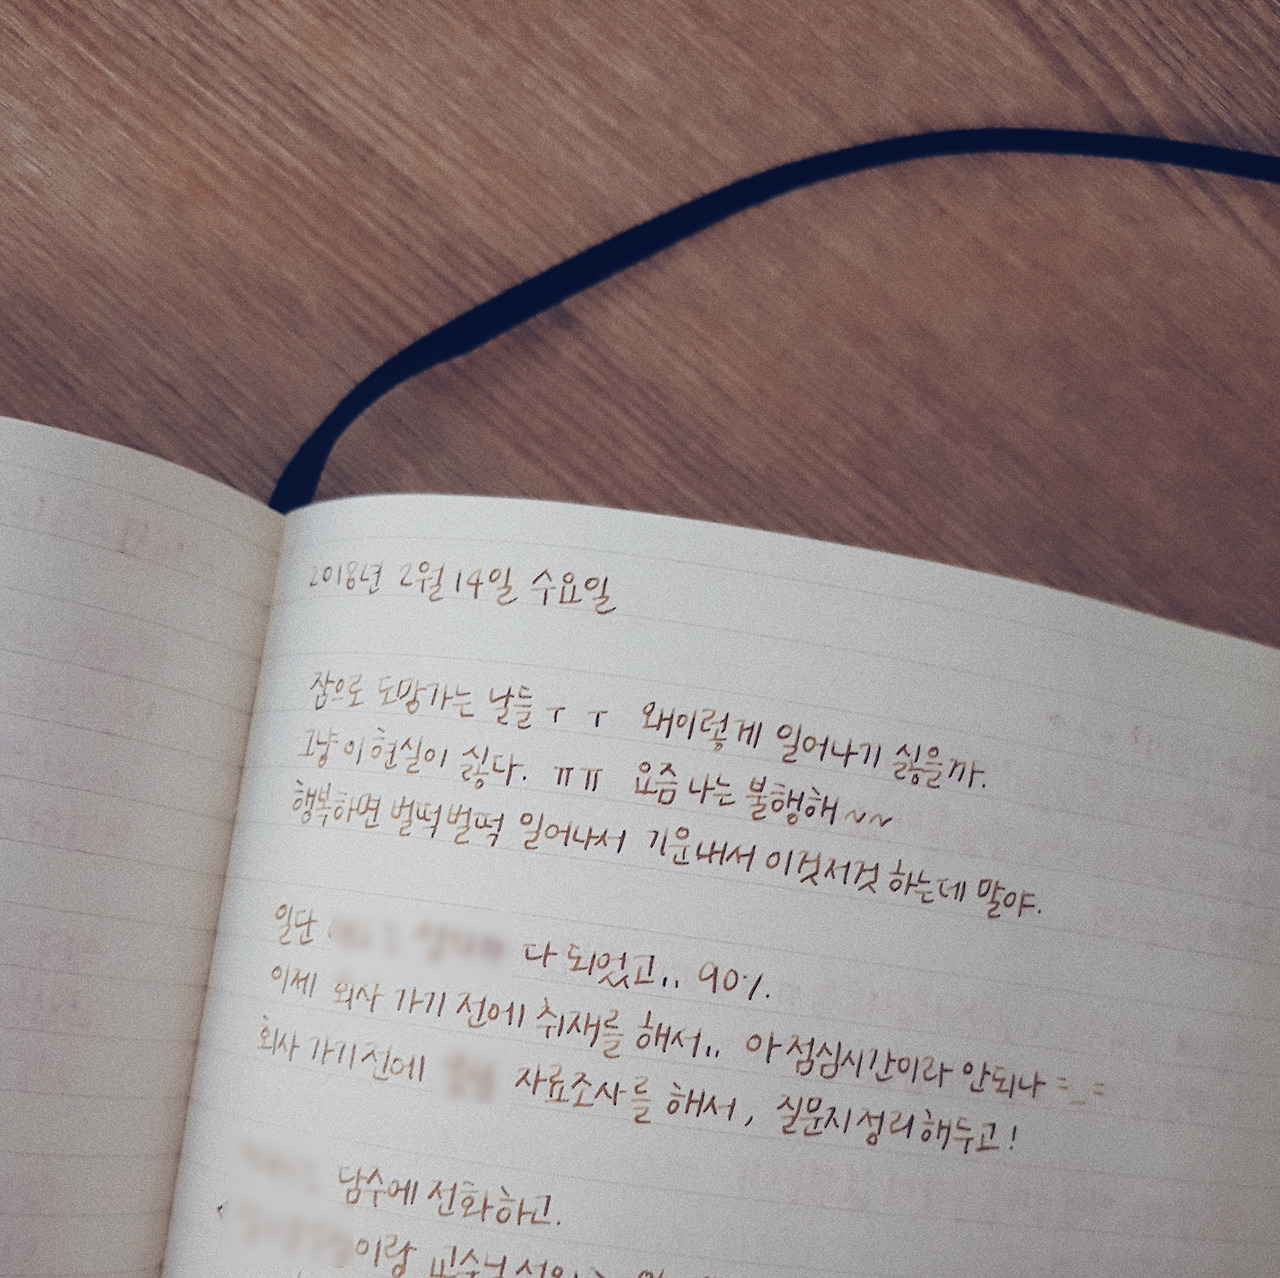 2018년 2월 14일 수요일
잠으로 도망가는 날들 ㅜ ㅜ 왜이렇게 일어나기 싫을까.
그냥 이 현실이 싫다. ㅠㅠ 요즘 나는 불행해~~
행복하면 벌떡벌떡 일어나서 기운내서 이것저것 하는데 말야.
일단 다 되었고.. 90%.
이제 회사 가기 전에 취재를 해서.. 아 점심시간이라 안되나 =_=
회사 가기전에 자료조사를 해서, 질문지정리해두고!
남수에 전화하고.
이랑 교수님